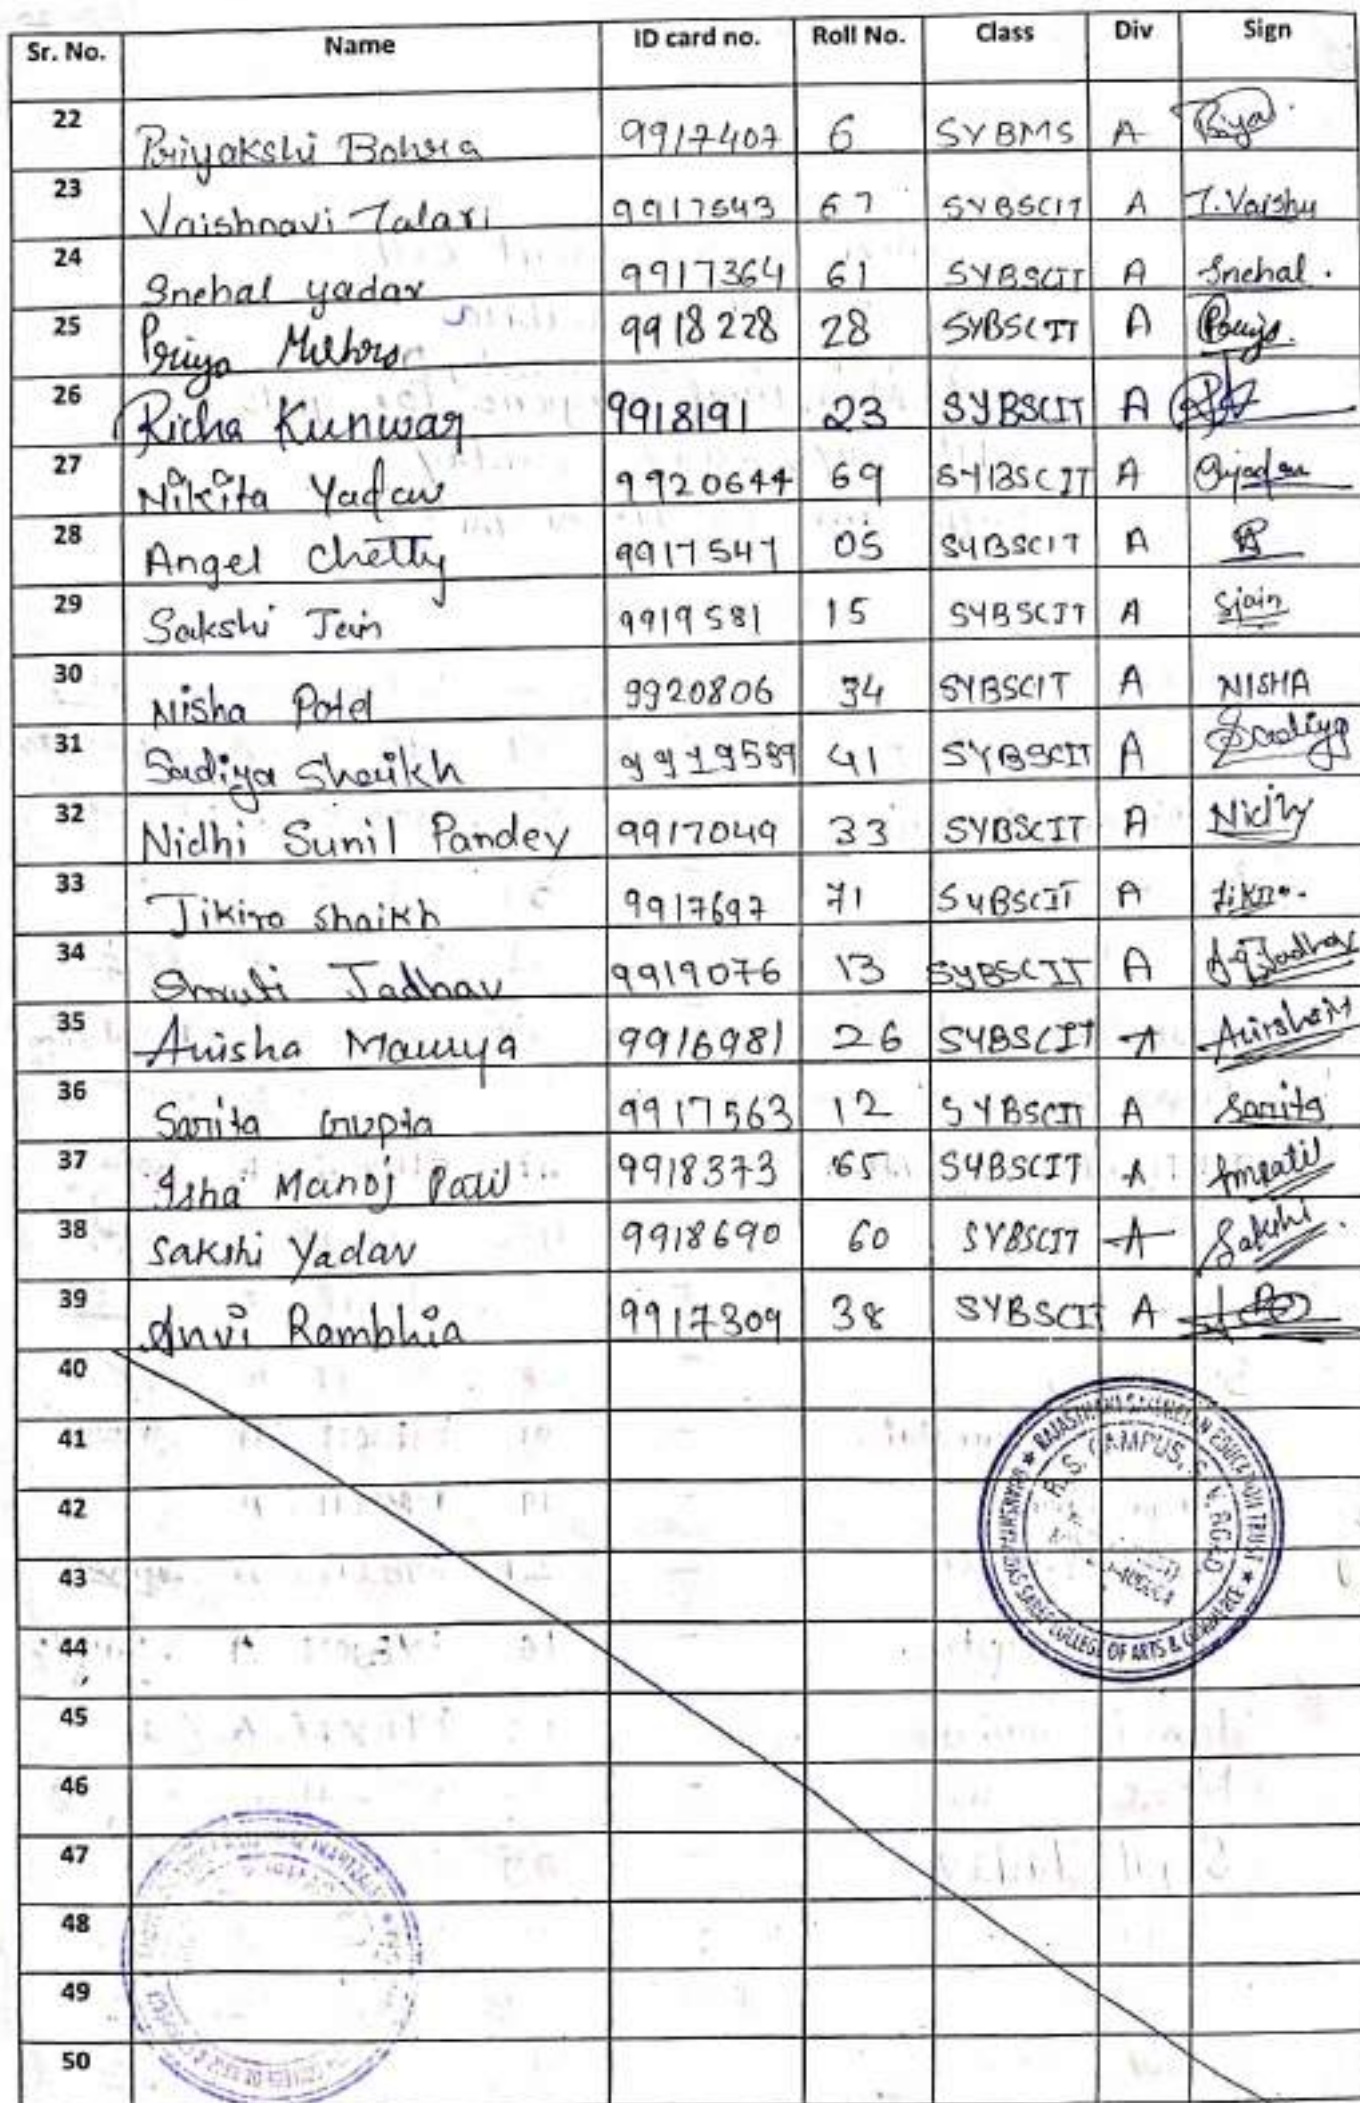 Sr. No. Name ID card no. Roll No. Class Div Sign
22 Priyakshi Bohra 9917407 6 SYBMS A Riya
23 Vaishnavi Talari 9917543 67 SYBSCIT A T.Vaishu
24 Snehal yadav 9917364 61 SYBSCIT A Snehal.
25 Priya 9918228 28 SYBSCIT A
26 Richa Kunwar 9918191 23 SYBSCIT A
27 Nikita Yadav 9920644 69 SYBSCIT A
28 Angel Chetty 9917547 05 SYBSCIT A
29 Sakshi Jain 9919581 15 SYBSCIT A Sjain
30 Nisha Patel 9920806 34 SYBSCIT A NISHA
31 Sadiya Shaikh 9919589 41 SYBSCIT A Sadiya
32 Nidhi Sunil Pandey 9917049 33 SYBSCIT A Nidhi
33 Jikira Shaikh 9917697 71 SYBSCIT A
34 Shruti Jadhav 9919076 13 SYBSCIT A
35 Anisha Maurya 9916981 26 SYBSCIT A
36 Sarita Gupta 9917563 12 SYBSCIT A Sarita
37 Isha Manoj Patil 9918373 65 SYBSCIT A
38 Sakshi Yadav 9918690 60 SYBSCIT A Sakshi.
39 Anvi Rambhia 9917309 38 SYBSCIT A
40
41
42
43
44
45
46
47
48
49
50
RAJASTHANI SAMMELAN EDUCATION TRUST
COLLEGE OF ARTS & COMMERCE
R.S. CAMPUS, S.V. ROAD